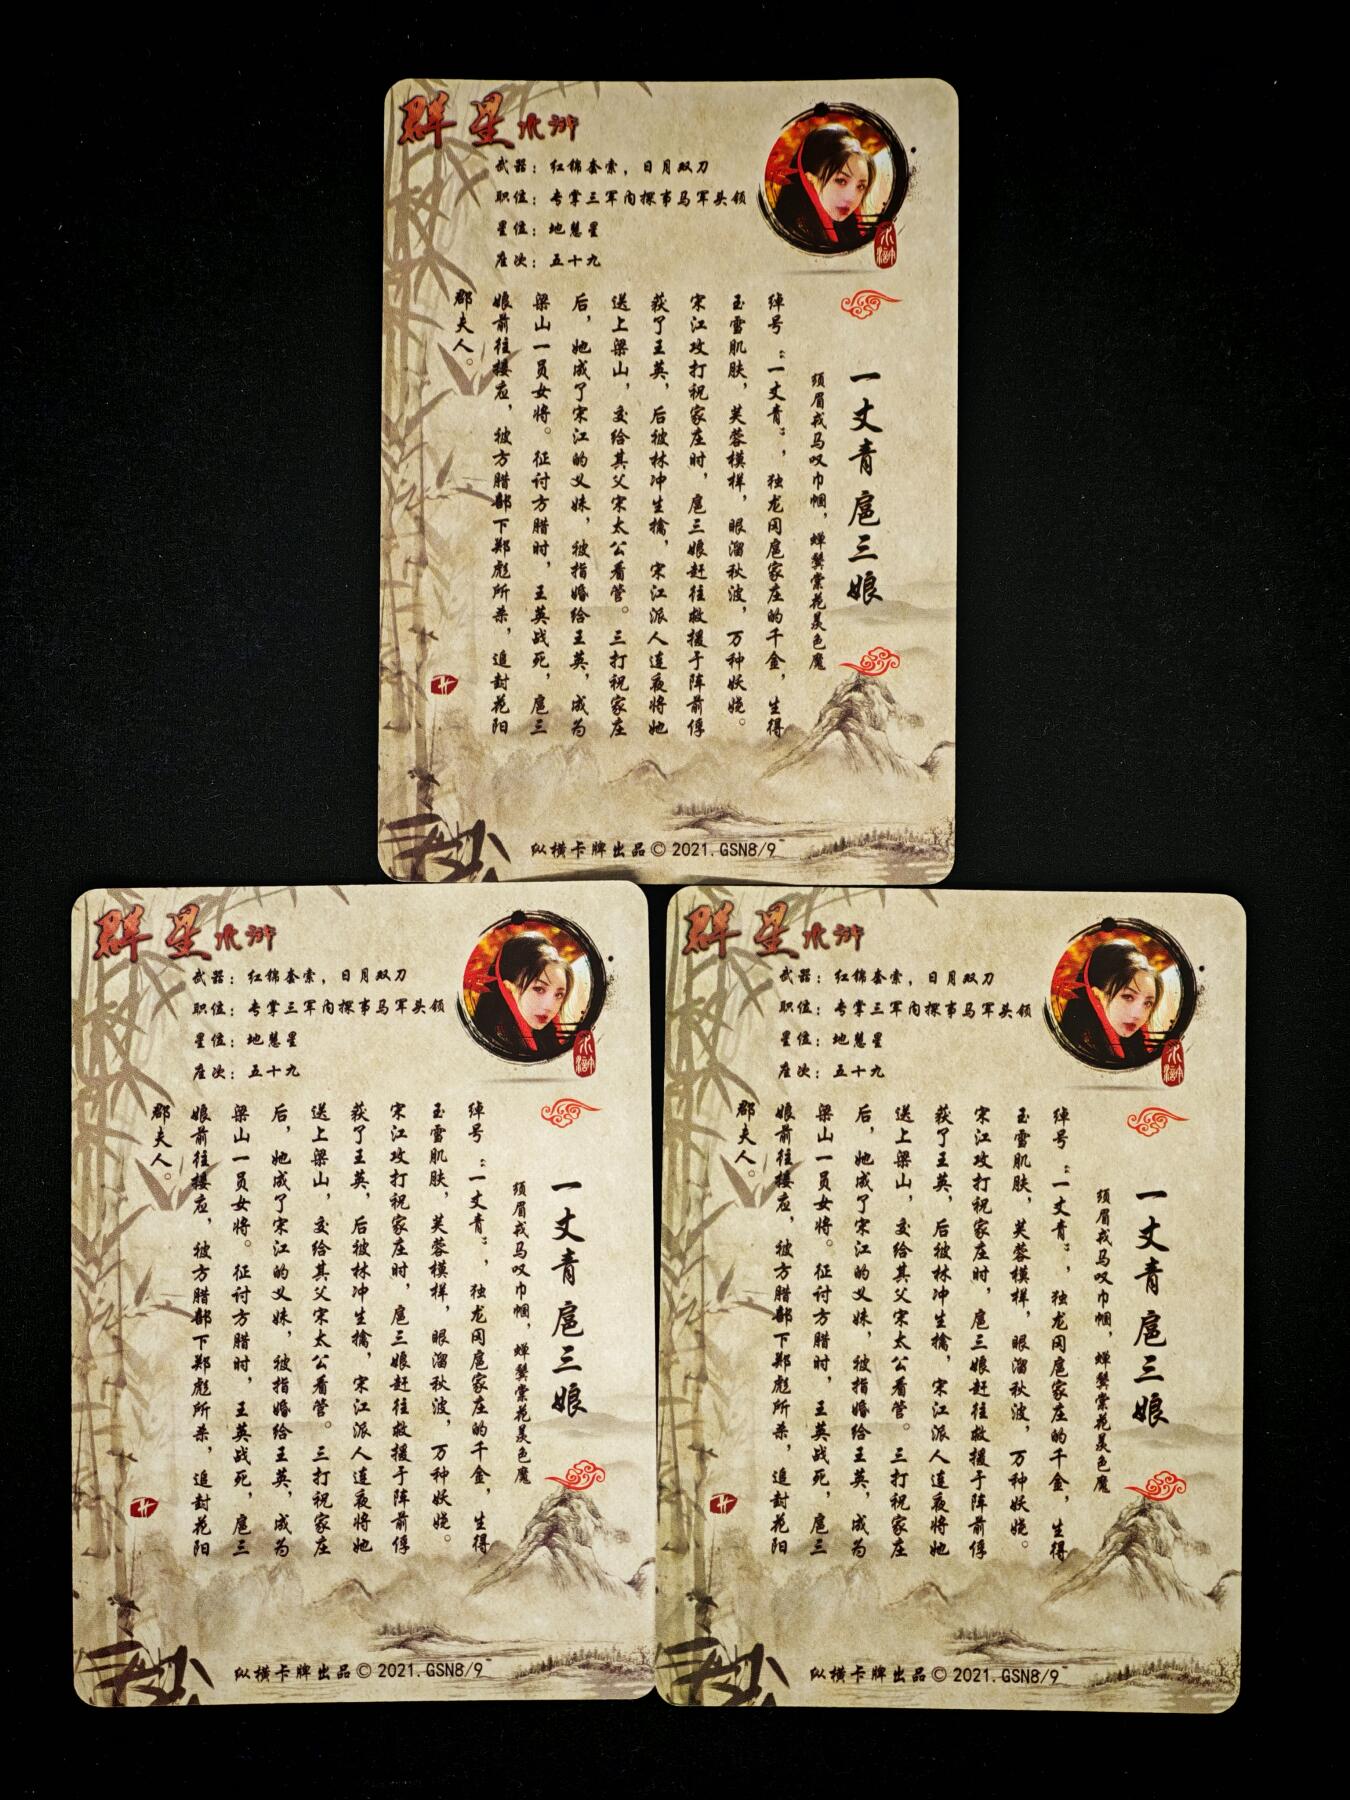 群星水浒
武器：红锦套索，日月双刀
职位：专掌三军内探事马军头领
星位：地慧星
座次：五十九
水浒
一丈青 扈三娘
须眉戎马叹巾帼，蝉鬓棠花羡色魔
绰号：“一丈青”，独龙冈扈家庄的千金，生得
玉雪肌肤，芙蓉模样，眼溜秋波，万种妖娆。
宋江攻打祝家庄时，扈三娘赶往救援于阵前俘
获了王英，后被林冲生擒，宋江派人连夜将她
送上梁山，交给其父宋太公看管。三打祝家庄
后，她成了宋江的义妹，被指婚给王英，成为
梁山一员女将。征讨方腊时，王英战死，扈三
娘前往接应，被方腊部下郑彪所杀，追封花阳
郡夫人。
纵横卡牌出品© 2021.GSN8/9
群星水浒
武器：红锦套索，日月双刀
职位：专掌三军内探事马军头领
星位：地慧星
座次：五十九
水浒
一丈青 扈三娘
须眉戎马叹巾帼，蝉鬓棠花羡色魔
绰号：“一丈青”，独龙冈扈家庄的千金，生得
玉雪肌肤，芙蓉模样，眼溜秋波，万种妖娆。
宋江攻打祝家庄时，扈三娘赶往救援于阵前俘
获了王英，后被林冲生擒，宋江派人连夜将她
送上梁山，交给其父宋太公看管。三打祝家庄
后，她成了宋江的义妹，被指婚给王英，成为
梁山一员女将。征讨方腊时，王英战死，扈三
娘前往接应，被方腊部下郑彪所杀，追封花阳
郡夫人。
纵横卡牌出品© 2021.GSN8/9
群星水浒
武器：红锦套索，日月双刀
职位：专掌三军内探事马军头领
星位：地慧星
座次：五十九
水浒
一丈青 扈三娘
须眉戎马叹巾帼，蝉鬓棠花羡色魔
绰号：“一丈青”，独龙冈扈家庄的千金，生得
玉雪肌肤，芙蓉模样，眼溜秋波，万种妖娆。
宋江攻打祝家庄时，扈三娘赶往救援于阵前俘
获了王英，后被林冲生擒，宋江派人连夜将她
送上梁山，交给其父宋太公看管。三打祝家庄
后，她成了宋江的义妹，被指婚给王英，成为
梁山一员女将。征讨方腊时，王英战死，扈三
娘前往接应，被方腊部下郑彪所杀，追封花阳
郡夫人。
纵横卡牌出品© 2021.GSN8/9